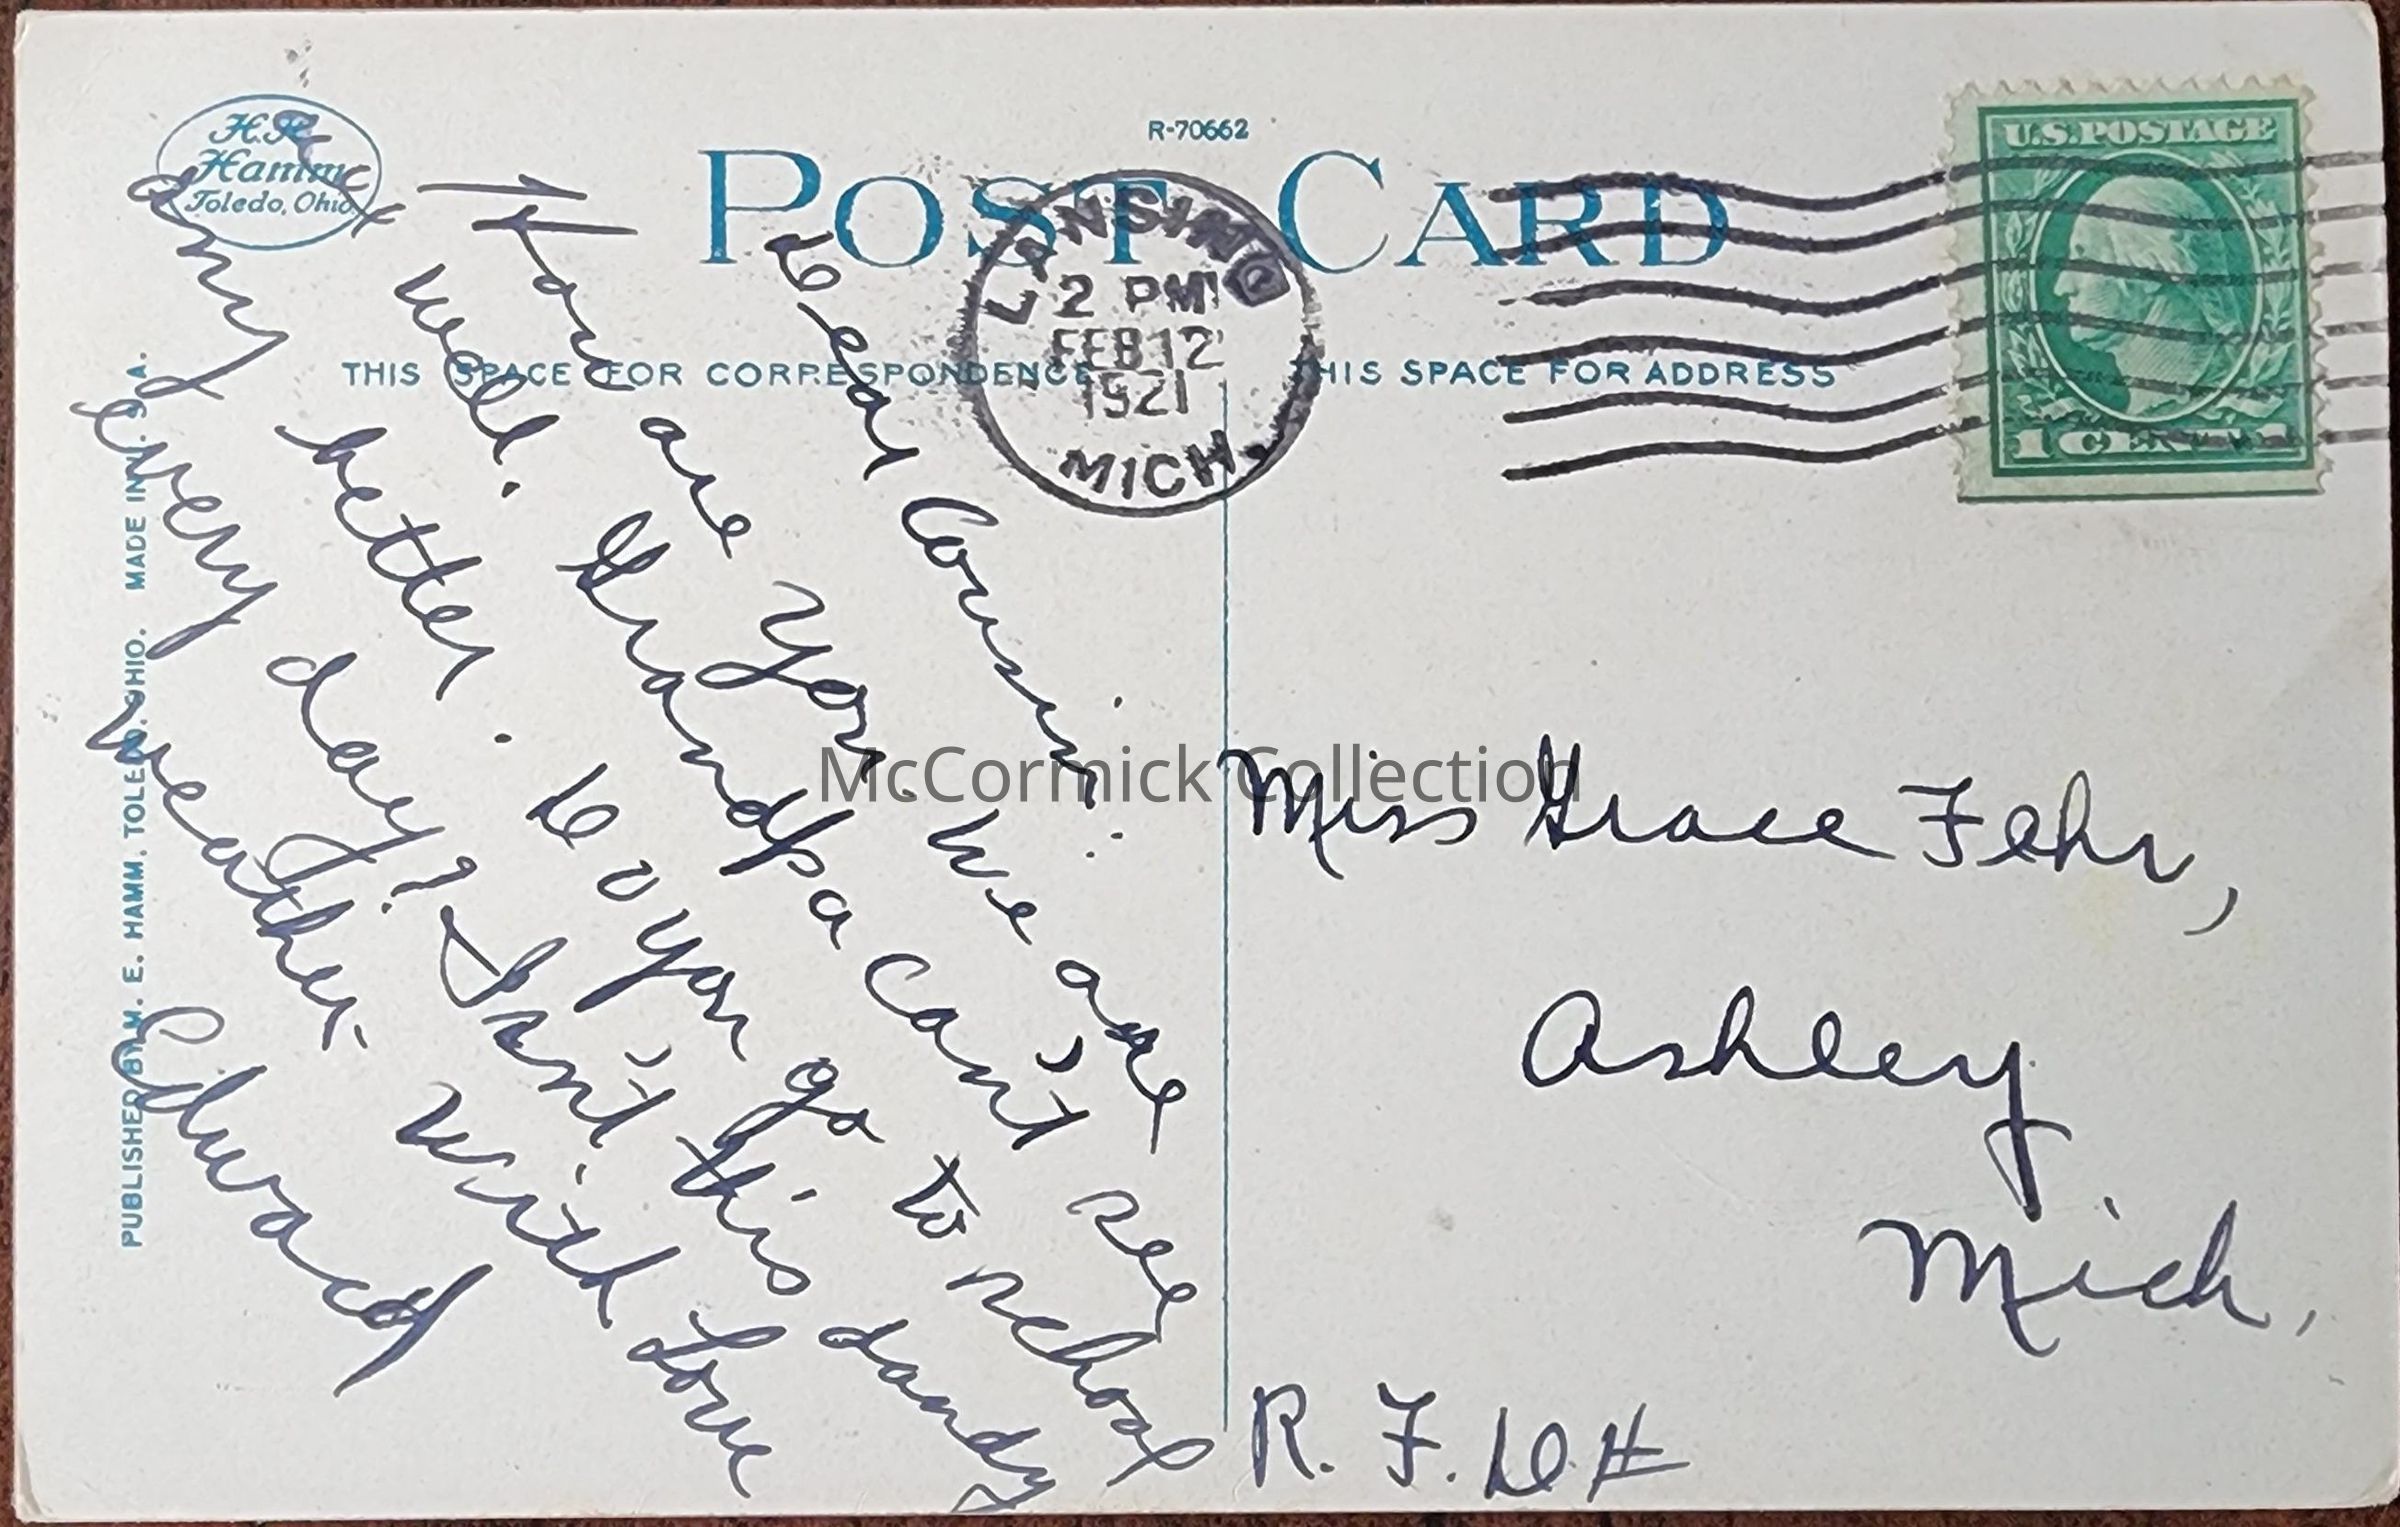 H.H.
Hamm
Toledo, Ohio
R-70662
POST CARD
LANSING
2 PM
FEB 12
1921
MICH.
U.S. POSTAGE
1 CENT 1
THIS SPACE FOR CORRESPONDENCE
THIS SPACE FOR ADDRESS
Dear Cousin:
How are you. We are
well. Grandpa can't see
any better. Do you go to school
every day? Isn't this dandy
weather. With Love
Edward
Miss Grace Fehr,
Ashley
Mich.
R. F. D. #
PUBLISHED BY M. E. HAMM, TOLEDO, OHIO. MADE IN U.S.A.
McCormick Collection